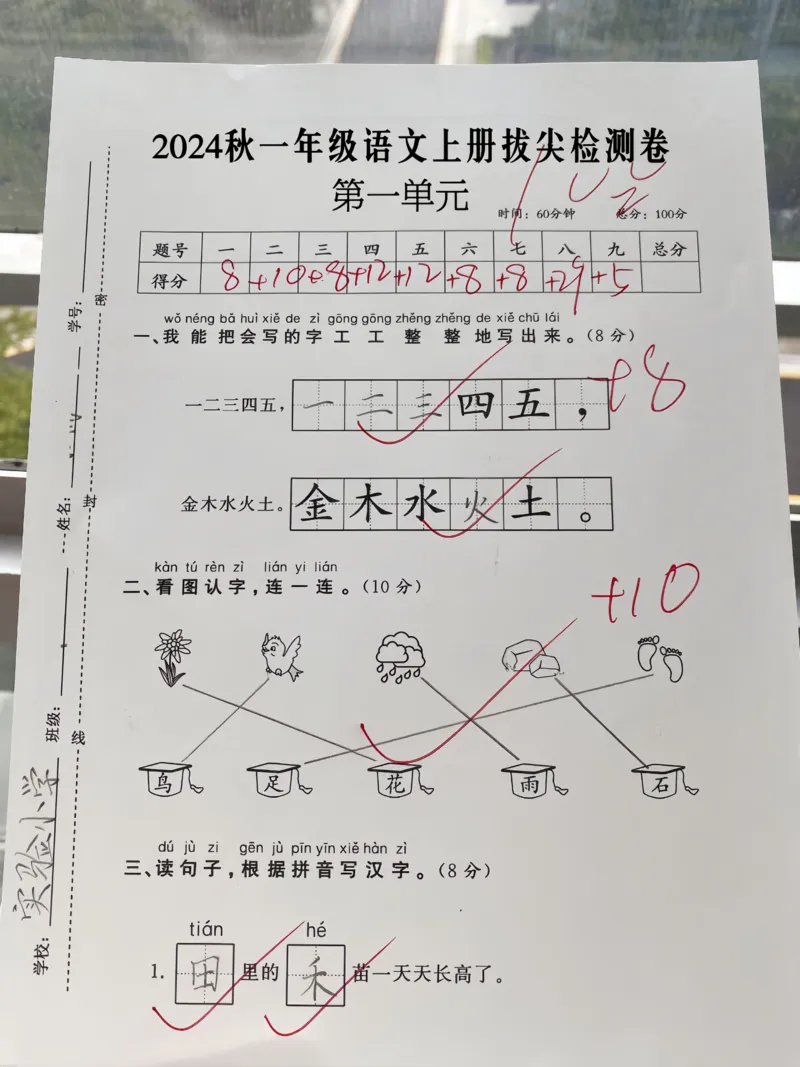 2024秋一年级语文上册拔尖检测卷
第一单元
时间：60分钟 总分：100分
100
题号 一 二 三 四 五 六 七 八 九 总分
得分 8 +10 +8 +12 +12 +8 +8 +29 +5
wǒ néng bǎ huì xiě de zì gōng gōng zhěng zhěng de xiě chū lái
一、我能把会写的字工工整整地写出来。（8分）
一二三四五， 一二三四五，
+8
金木水火土。 金木水火土。
kàn tú rèn zì lián yi lián
二、看图认字，连一连。（10分）
+10
鸟 足 花 雨 石
dú jù zi gēn jù pīn yīn xiě hàn zì
三、读句子，根据拼音写汉字。（8分）
tián hé
1. 田里的禾苗一天天长高了。
学校：实验小学 班级： 姓名： 学号：
线 封 密